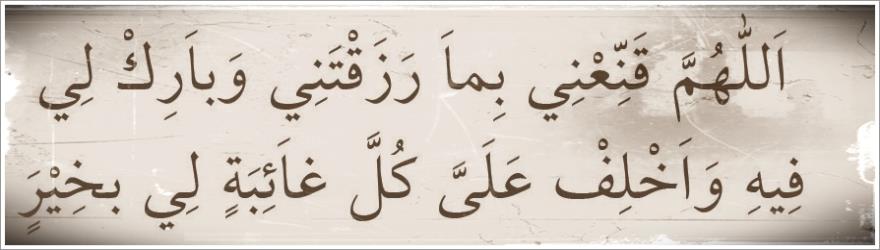 اَللّٰهُمَّ قَنِّعْنِي بِماَ رَزَقْتَنِي وَباَرِكْ لِي
فِيهِ وَاَخْلِفْ عَلَىَّ كُلَّ غاَئِبَةٍ لِي بخِيْرَ